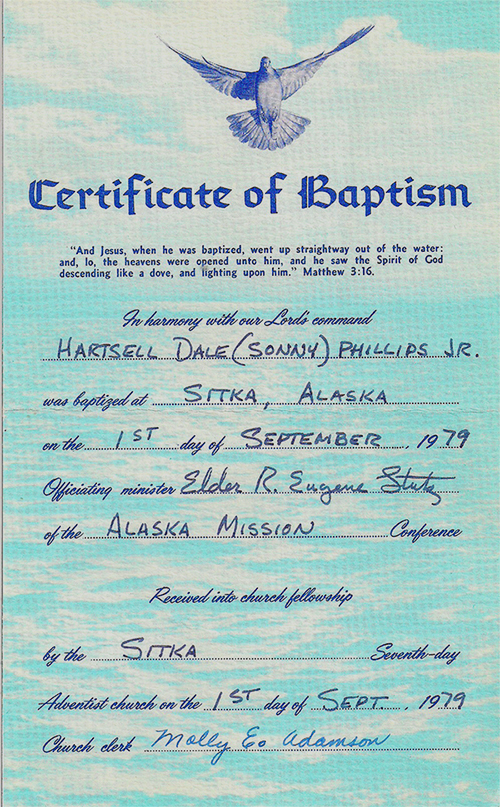 Certificate of Baptism
"And Jesus, when he was baptized, went up straightway out of the water:
and, lo, the heavens were opened unto him, and he saw the Spirit of God
descending like a dove, and lighting upon him." Matthew 3:16.
In harmony with our Lord's command
HARTSELL DALE (SONNY) PHILLIPS JR.
was baptized at SITKA, ALASKA
on the 1ST day of SEPTEMBER, 1979
Officiating minister Elder R. Eugene Stutz
of the ALASKA MISSION Conference
Received into church fellowship
by the SITKA Seventh-day
Adventist church on the 1ST day of SEPT., 1979
Church clerk Molly Eo Adamson